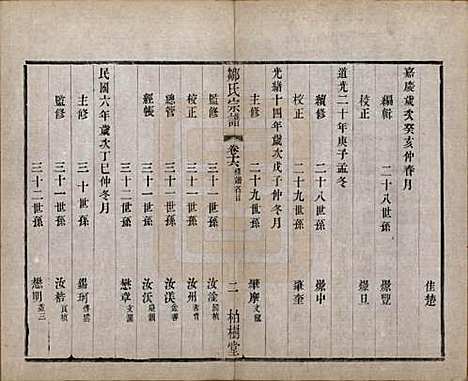 嘉慶歲次癸亥仲春月
佳楚
編輯 二十八世孫 縣豐
校正 縣旦
道光二十年庚子孟冬
續修 二十八世孫 縣中
校正 二十九世孫 肇奎
光緒十四年歲次戊子仲冬月
主修 二十九世孫 肇摩
鄒氏宗譜 卷十六 修譜名目 二 柏樹堂
監修 三十二世孫 汝淦
校正 三十二世孫 汝州
總管 三十二世孫 汝渼
經帳 三十一世孫 汝沃
三十二世孫 懋章
民國六年歲次丁巳仲冬月
主修 三十世孫 錫珂
監修 三十一世孫 汝楷
三十二世孫 懋明